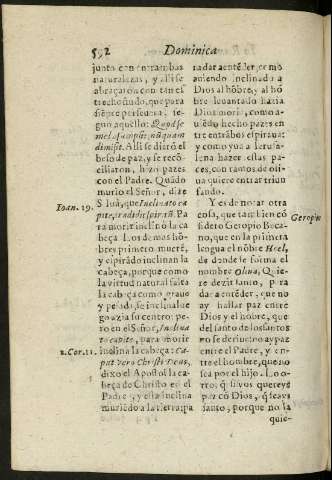 592 Dominica
junto con entrambas
naturalezas, y alli se
abraçaron con tan es
trecho ñudo, que para
siẽpre perseuera: se-
gun aquello: Quod se-
mel assumpsit, nũquam
dimisit. Alli se diró el
beso de paz, y se recõ-
ciliaron, hizo pazes
con el Padre. Quãdo
murio el Señor, dize
Ioan. 19.
S. Iuã, que Inclinato ca
pite, tradidit spiritũ. Pa
ra morir inclinó la ca
beça. Los demas hõ-
bres primero muere,
y espirãdo inclinan la
cabeça, porque como
la virtud natural falta
la cabeça como graue
y pesada, se inclina al
gozia su centro: pe-
ro en el Señor, Inclina
to capite, para morir
1. Cor. 11.
inclina la cabeça: Ca-
put vero Christi Deus,
dixo el Apostol la ca
beça de Christo en el
Padre, y esta inclina
muriẽdo a la tierra pa
ra dar a entẽder, como
auiendo inclinado a
Dios al hõbre, y al hõ
bre leuantado hazia
Dios moria, como a-
uiẽdo hecho pazes en
tre entrãbos espiraua:
y como yua a Ierusa-
lena hazer estas pa-
ces, con ramos de oli-
ua quiere entrar triun
fando.
Y es de notar otra
cosa, que tambien cõ
Geropio
sidero Geropio Beca-
no, que en la primera
lengua el nõbre Heel,
de donde se forma el
nombre Oliua, Quie-
re dezir tanto, para
dar a entẽder, que no
ay hallar paz entre
Dios y el hõbre, que
del santo de los santos
no se deriue, no ay paz
entre el Padre, y en-
tre el hombre, que no
sea por el hijo. Lo o-
tro; q̃ si vos quereys
paz cõ Dios, q̃ seays
santo, porque no la
quie-